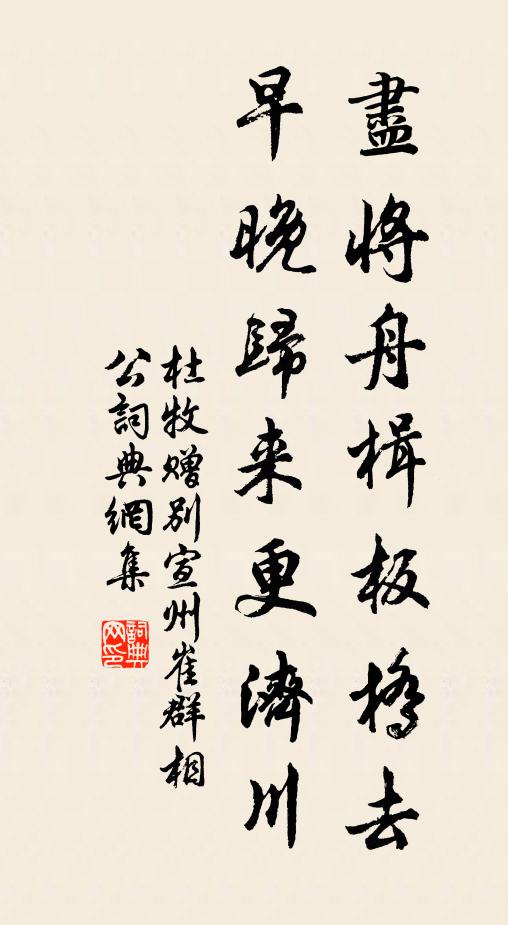 盡將舟楫板橋去
早晚歸来更濟川
杜牧赠别宣州崔群相
公詞典網集
詞典网印